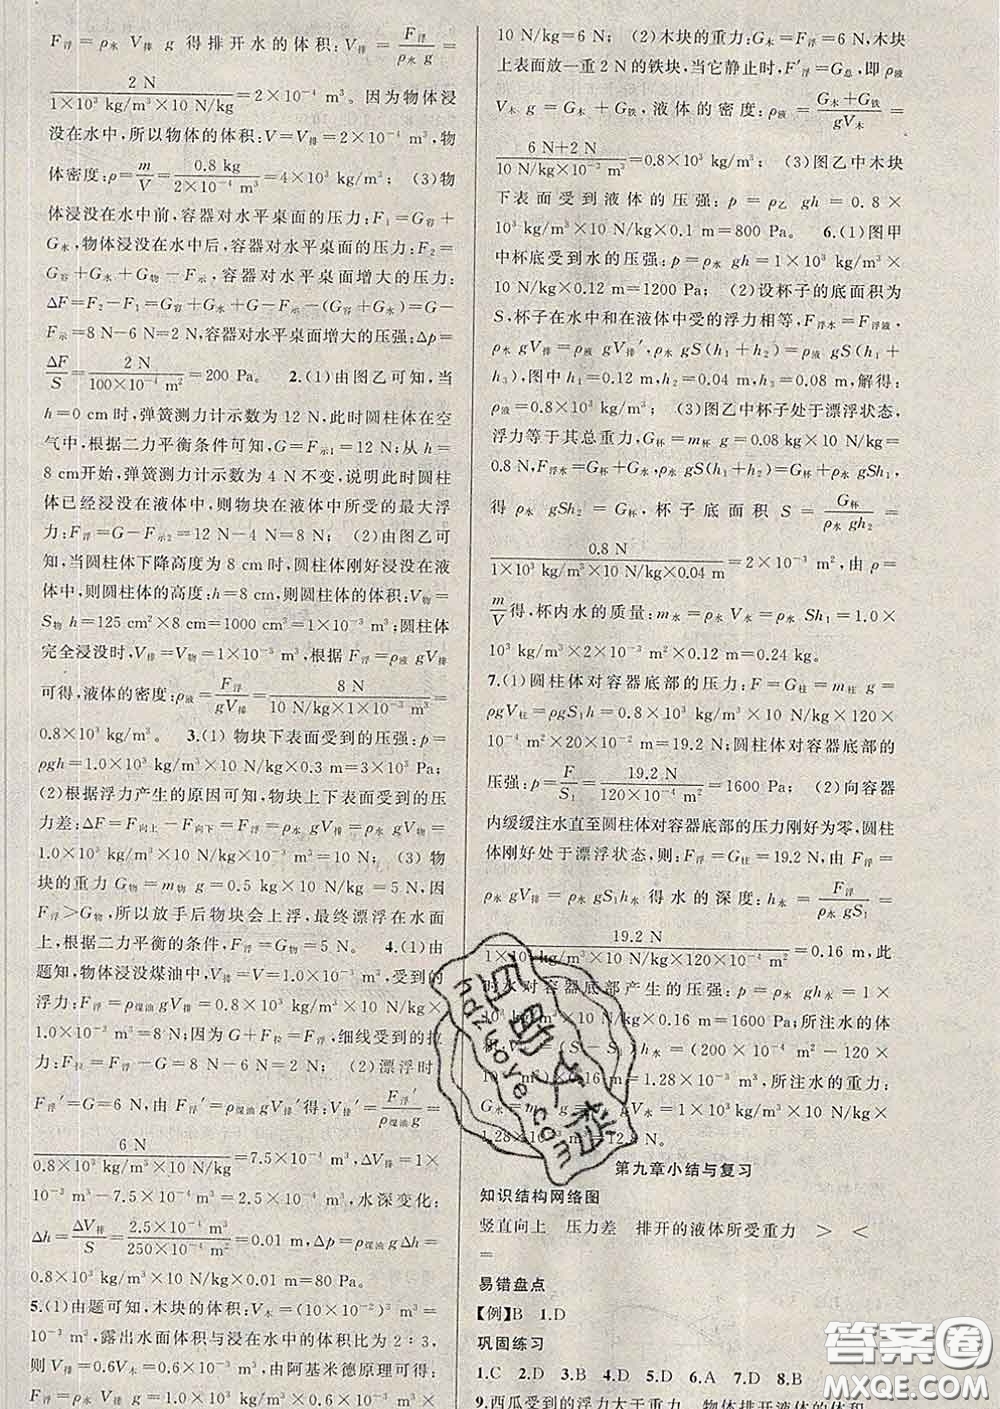 F浮=ρ水 V排 g 得排开水的体积:V排=F浮/ρ水 g=
2 N/1×10³ kg/m³×10 N/kg=2×10⁻⁴ m³。因为物体浸
没在水中,所以物体的体积:V=V排=2×10⁻⁴ m³,物
体密度:ρ=m/V=0.8 kg/2×10⁻⁴ m³=4×10³ kg/m³; (3)物
体浸没在水中前,容器对水平桌面的压力:F₁=G容+
G水,物体浸没在水中后,容器对水平桌面的压力:F₂=
G容+G水+G物-F示,容器对水平桌面增大的压力:
ΔF=F₂-F₁=G容+G水+G-F示-(G容+G水)=G-
F示=8 N-6 N=2 N,容器对水平桌面增大的压强:Δp=
ΔF/S=2 N/100×10⁻⁴ m²=200 Pa。 2.(1)由图乙可知,当
h=0 cm 时,弹簧测力计示数为 12 N,此时圆柱体在空
气中,根据二力平衡条件可知,G=F示1=12 N;从 h=
8 cm开始,弹簧测力计示数为 4 N 不变,说明此时圆柱
体已经浸没在液体中,则物块在液体中所受的最大浮
力:F浮=G-F示2=12 N-4 N=8 N; (2)由图乙可
知,当圆柱体下降高度为 8 cm 时,圆柱体刚好浸没在液体
中,则圆柱体的高度:h=8 cm,则圆柱体的体积:V物=
S物 h=125 cm²×8 cm=1000 cm³=1×10⁻³ m³;圆柱体
完全浸没时,V排=V物=1×10⁻³ m³,根据 F浮=ρ液 gV排
可得,液体的密度:ρ液=F浮/gV排=8 N/10 N/kg×1×10⁻³ m³=
0.8×10³ kg/m³。 3.(1) 物块下表面受到的压强:p=
ρgh=1.0×10³ kg/m³×10 N/kg×0.3 m=3×10³ Pa;
(2)根据浮力产生的原因可知,物块上下表面受到的压
力差:ΔF=F向上-F向下=F浮=ρ水 gV排=ρ水 gV物=
1.0×10³ kg/m³×10 N/kg×10⁻³ m³=10 N; (3) 物
块的重力 G物=m物 g=0.5 kg×10 N/kg=5 N,因
F浮>G物,所以放手后物块会上浮,最终漂浮在水面
上,根据二力平衡的条件,F浮=G物=5 N。 4.(1)由
题知,物体浸没煤油中,V排=V=1×10⁻³ m³,受到的
浮力:F浮=ρ煤油 gV排=0.8×10³ kg/m³×10 N/kg×
1.0×10⁻³ m³=8 N;因为 G+F拉=F浮,细线受到的拉
力:F拉=F浮-G=8 N-6 N=2 N; (2)漂浮时
F浮′=G=6 N,由 F浮′=ρ煤油 gV排′得:V排′=F浮′/ρ煤油 g=
6 N/0.8×10³ kg/m³×10 N/kg=7.5×10⁻⁴ m³,ΔV排=1×
10⁻³ m³-7.5×10⁻⁴ m³=2.5×10⁻⁴ m³,水深变化:
Δh=ΔV排/S=2.5×10⁻⁴ m³/250×10⁻⁴ m²=0.01 m,Δp=ρ煤油 gΔh=
0.8×10³ kg/m³×10 N/kg×0.01 m=80 Pa。
5.(1)由题可知,木块的体积:V木=(10×10⁻²)³ m³=
10⁻³ m³,露出水面体积与浸在水中的体积比为 2∶3,
则 V排=0.6V木=0.6×10⁻³ m³,由阿基米德原理可得:
F浮=ρ水 gV排=1.0×10³ kg/m³×0.6×10⁻³ m³×
10 N/kg=6 N; (2)木块的重力:G木=F浮=6 N,木块
上表面放一重 2 N 的铁块,当它静止时,F′浮=G总,即 ρ液
V木 g=G木+G铁,液体的密度:ρ液=G木+G铁/gV木=
6 N+2 N/10 N/kg×10⁻³ m³=0.8×10³ kg/m³; (3)图乙中木块
下表面受到液体的压强:p=ρ乙 gh=0.8×
10³ kg/m³×10 N/kg×0.1 m=800 Pa。 6.(1)图甲
中杯底受到水的压强:p=ρ水 gh=1×10³ kg/m³×
10 N/kg×0.12 m=1200 Pa; (2)设杯子的底面积为
S,杯子在水中和在液体中受的浮力相等,F浮水=F浮液,
ρ水 gV排=ρ液 gV排′,ρ水 gS(h₁+h₂)=ρ液 gS(h₁+
h₃),图中 h₁=0.12 m,h₂=0.04 m,h₃=0.08 m,解得:
ρ液=0.8×10³ kg/m³; (3)图乙中杯子处于漂浮状态,
浮力等于其总重力,G杯=m杯 g=0.08 kg×10 N/kg=
0.8 N,F浮水=G总,ρ水 gS(h₁+h₂)=G杯+ρ水 gSh₁,
得 ρ水 gSh₂=G杯,杯子底面积 S=G杯/ρ水 gh₂=
0.8 N/1×10³ kg/m³×10 N/kg×0.04 m=2×10⁻³ m²,由 ρ=
m/V得,杯内水的质量:m水=ρ水 V水=ρ水 Sh₁=1.0×
10³ kg/m³×2×10⁻³ m²×0.12 m=0.24 kg。
7.(1)圆柱体对容器底部的压力:F=G柱=m柱 g=
ρgV柱=ρgS₁h=0.8×10³ kg/m³×10 N/kg×120×
10⁻⁴ m²×20×10⁻² m=19.2 N;圆柱体对容器底部的
压强:p=F/S₁=19.2 N/120×10⁻⁴ m²=1600 Pa; (2)向容器
内缓缓注水直至圆柱体对容器底部的压力刚好为零,圆柱
体刚好处于漂浮状态,则:F浮=G柱=19.2 N,由 F浮=
ρ水 gV排=ρ水 gS₁h水得水的深度:h水=F浮/ρ水 gS₁=
19.2 N/1×10³ kg/m³×10 N/kg×120×10⁻⁴ m²=0.16 m,此
时水对容器底部产生的压强:p=ρ水 gh水=1×
10³ kg/m³×10 N/kg×0.16 m=1600 Pa;所注水的体
积:V水=(S-S₁)h水=(200×10⁻⁴-120×
10⁻⁴)m²×0.16 m=1.28×10⁻³ m³,所注水的重力:
G水=m水 g=ρ水 gV水=1×10³ kg/m³×10 N/kg×
1.28×10⁻³ m³=12.8 N。
第九章小结与复习
知识结构网络图
竖直向上 压力差 排开的液体所受重力 > <
=
易错盘点
【例】B 1.D
巩固练习
1.C 2.D 3.B 4.D 5.D 6.A 7.D 8.B
9.西瓜受到的浮力大于重力 物体排开液体的体积
hdzuoye.com
答案圈
MXQE.COM